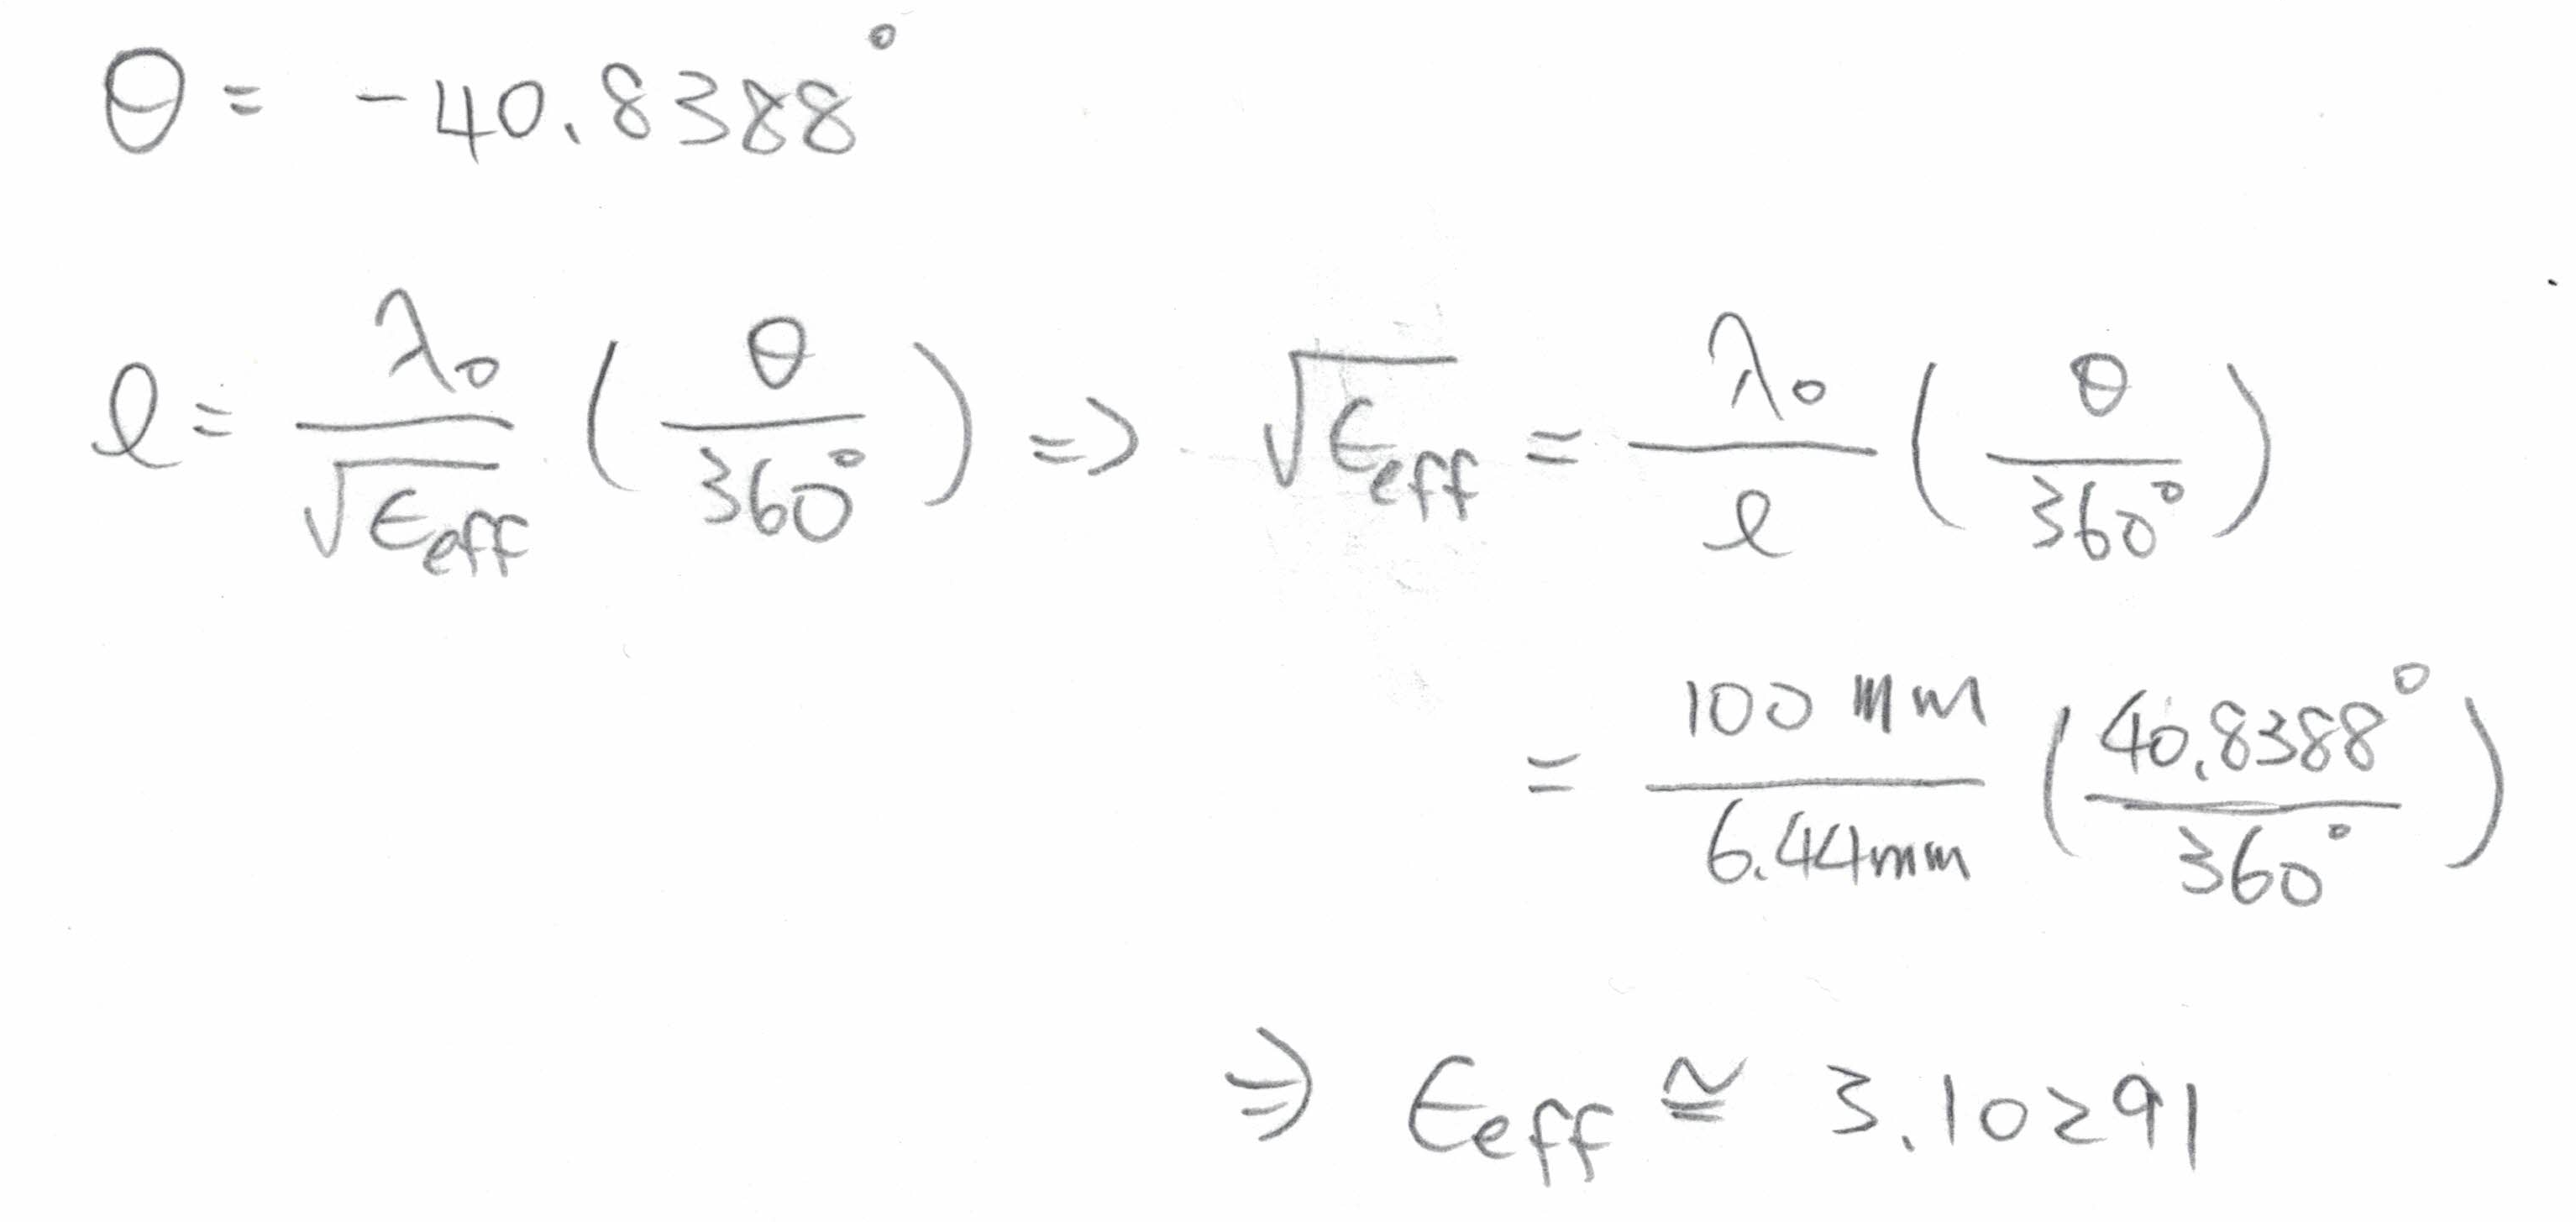 θ = -40.8388°
l = λ₀/√ϵ_eff (θ/360°) ⇒ √ϵ_eff = λ₀/l (θ/360°)
= 100 mm/6.44mm (40.8388°/360°)
⇒ ϵ_eff ≅ 3.10291